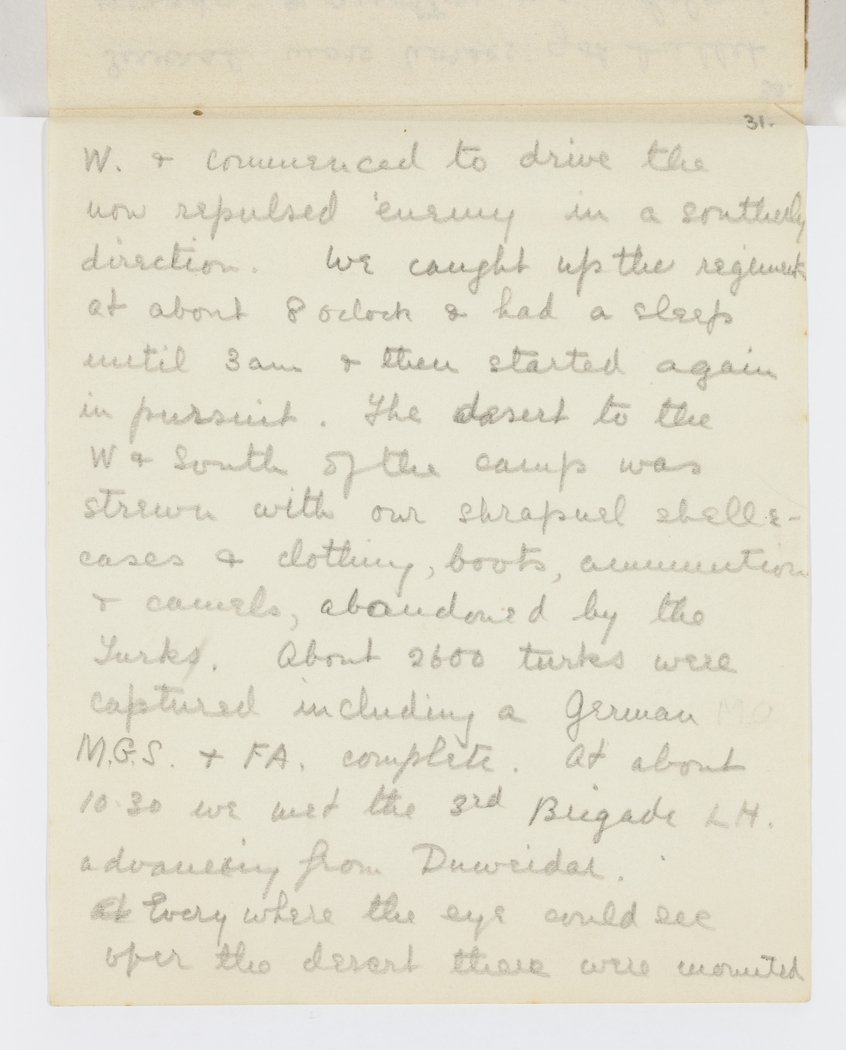 31.
W. & commenced to drive the
now repulsed enemy in a southerly
direction. We caught up the regiment
at about 8 oclock & had a sleep
until 3am & then started again
in pursuit. The desert to the
W & South of the camp was
strewn with our shrapnel shell-
cases & clothing, boots, ammunition
& camels, abandoned by the
Turks. About 2600 turks were
captured including a German
M.G.S. & FA. complete. At about
10.30 we met the 3rd Brigade LH.
advancing from Duweidar.
Every where the eye could see
over the desert there were mounted